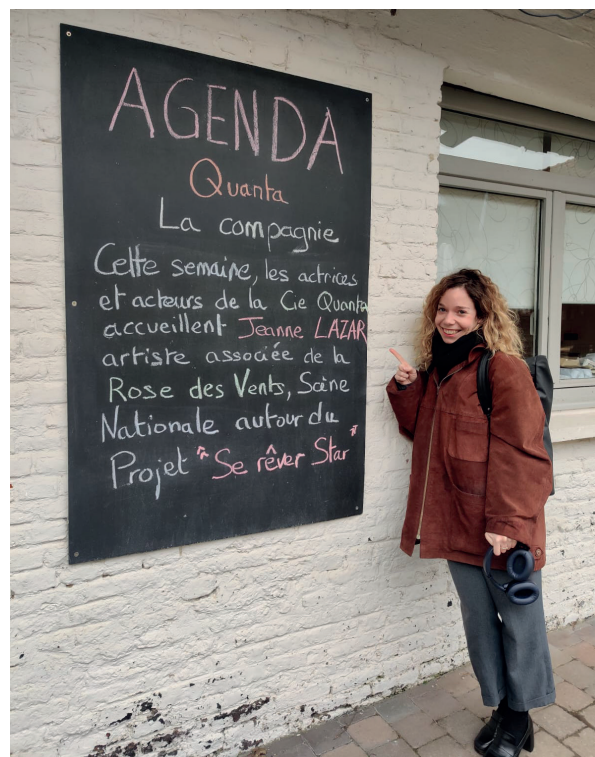 AGENDA
Quanta
La compagnie
Cette semaine, les actrices
et acteurs de la Cie Quanta
accueillent Jeanne LAZAR
artiste associée de la
Rose des Vents, Scène
Nationale autour du
Projet "Se rêver Star"